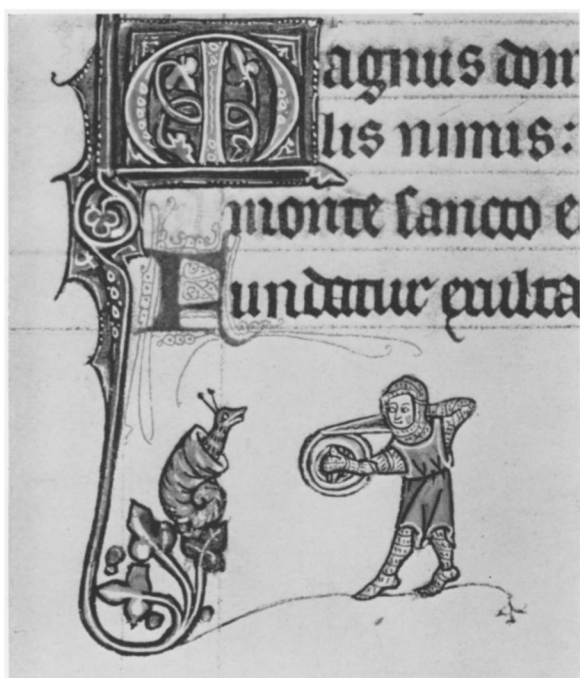 Magnus dom
lis nimis:
monte sancto e
Fundatur exulta